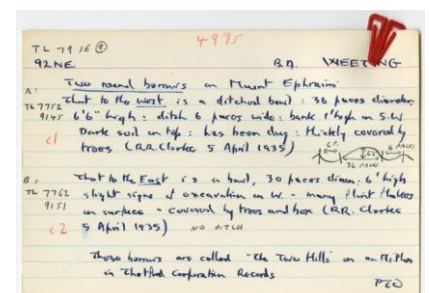 4995
TL 79 SE ⑨
92NE B.A. WEETING
Two round barrows on Mount Ephraim
A: That to the west is a ditched bowl: 30 paces diameter
TL 7752 6'6" high: ditch 6 paces wide: bank 1' high on S.W
9145 Dark soil on top: has been dug: thickly covered by
c1 trees (R.R. Clarke 5 April 1935)
6P. 6 PACES
36 PACES
B: That to the East is a bowl, 30 paces diam: 6' high
TL 7762 slight signs of excavation on W. - many flint flakes
9151 on surface - covered by trees and box (R.R. Clarke
c2 5 April 1935) NO DITCH
These barrows are called "The Two Hills" on an
in Thetford Corporation Records
PTO